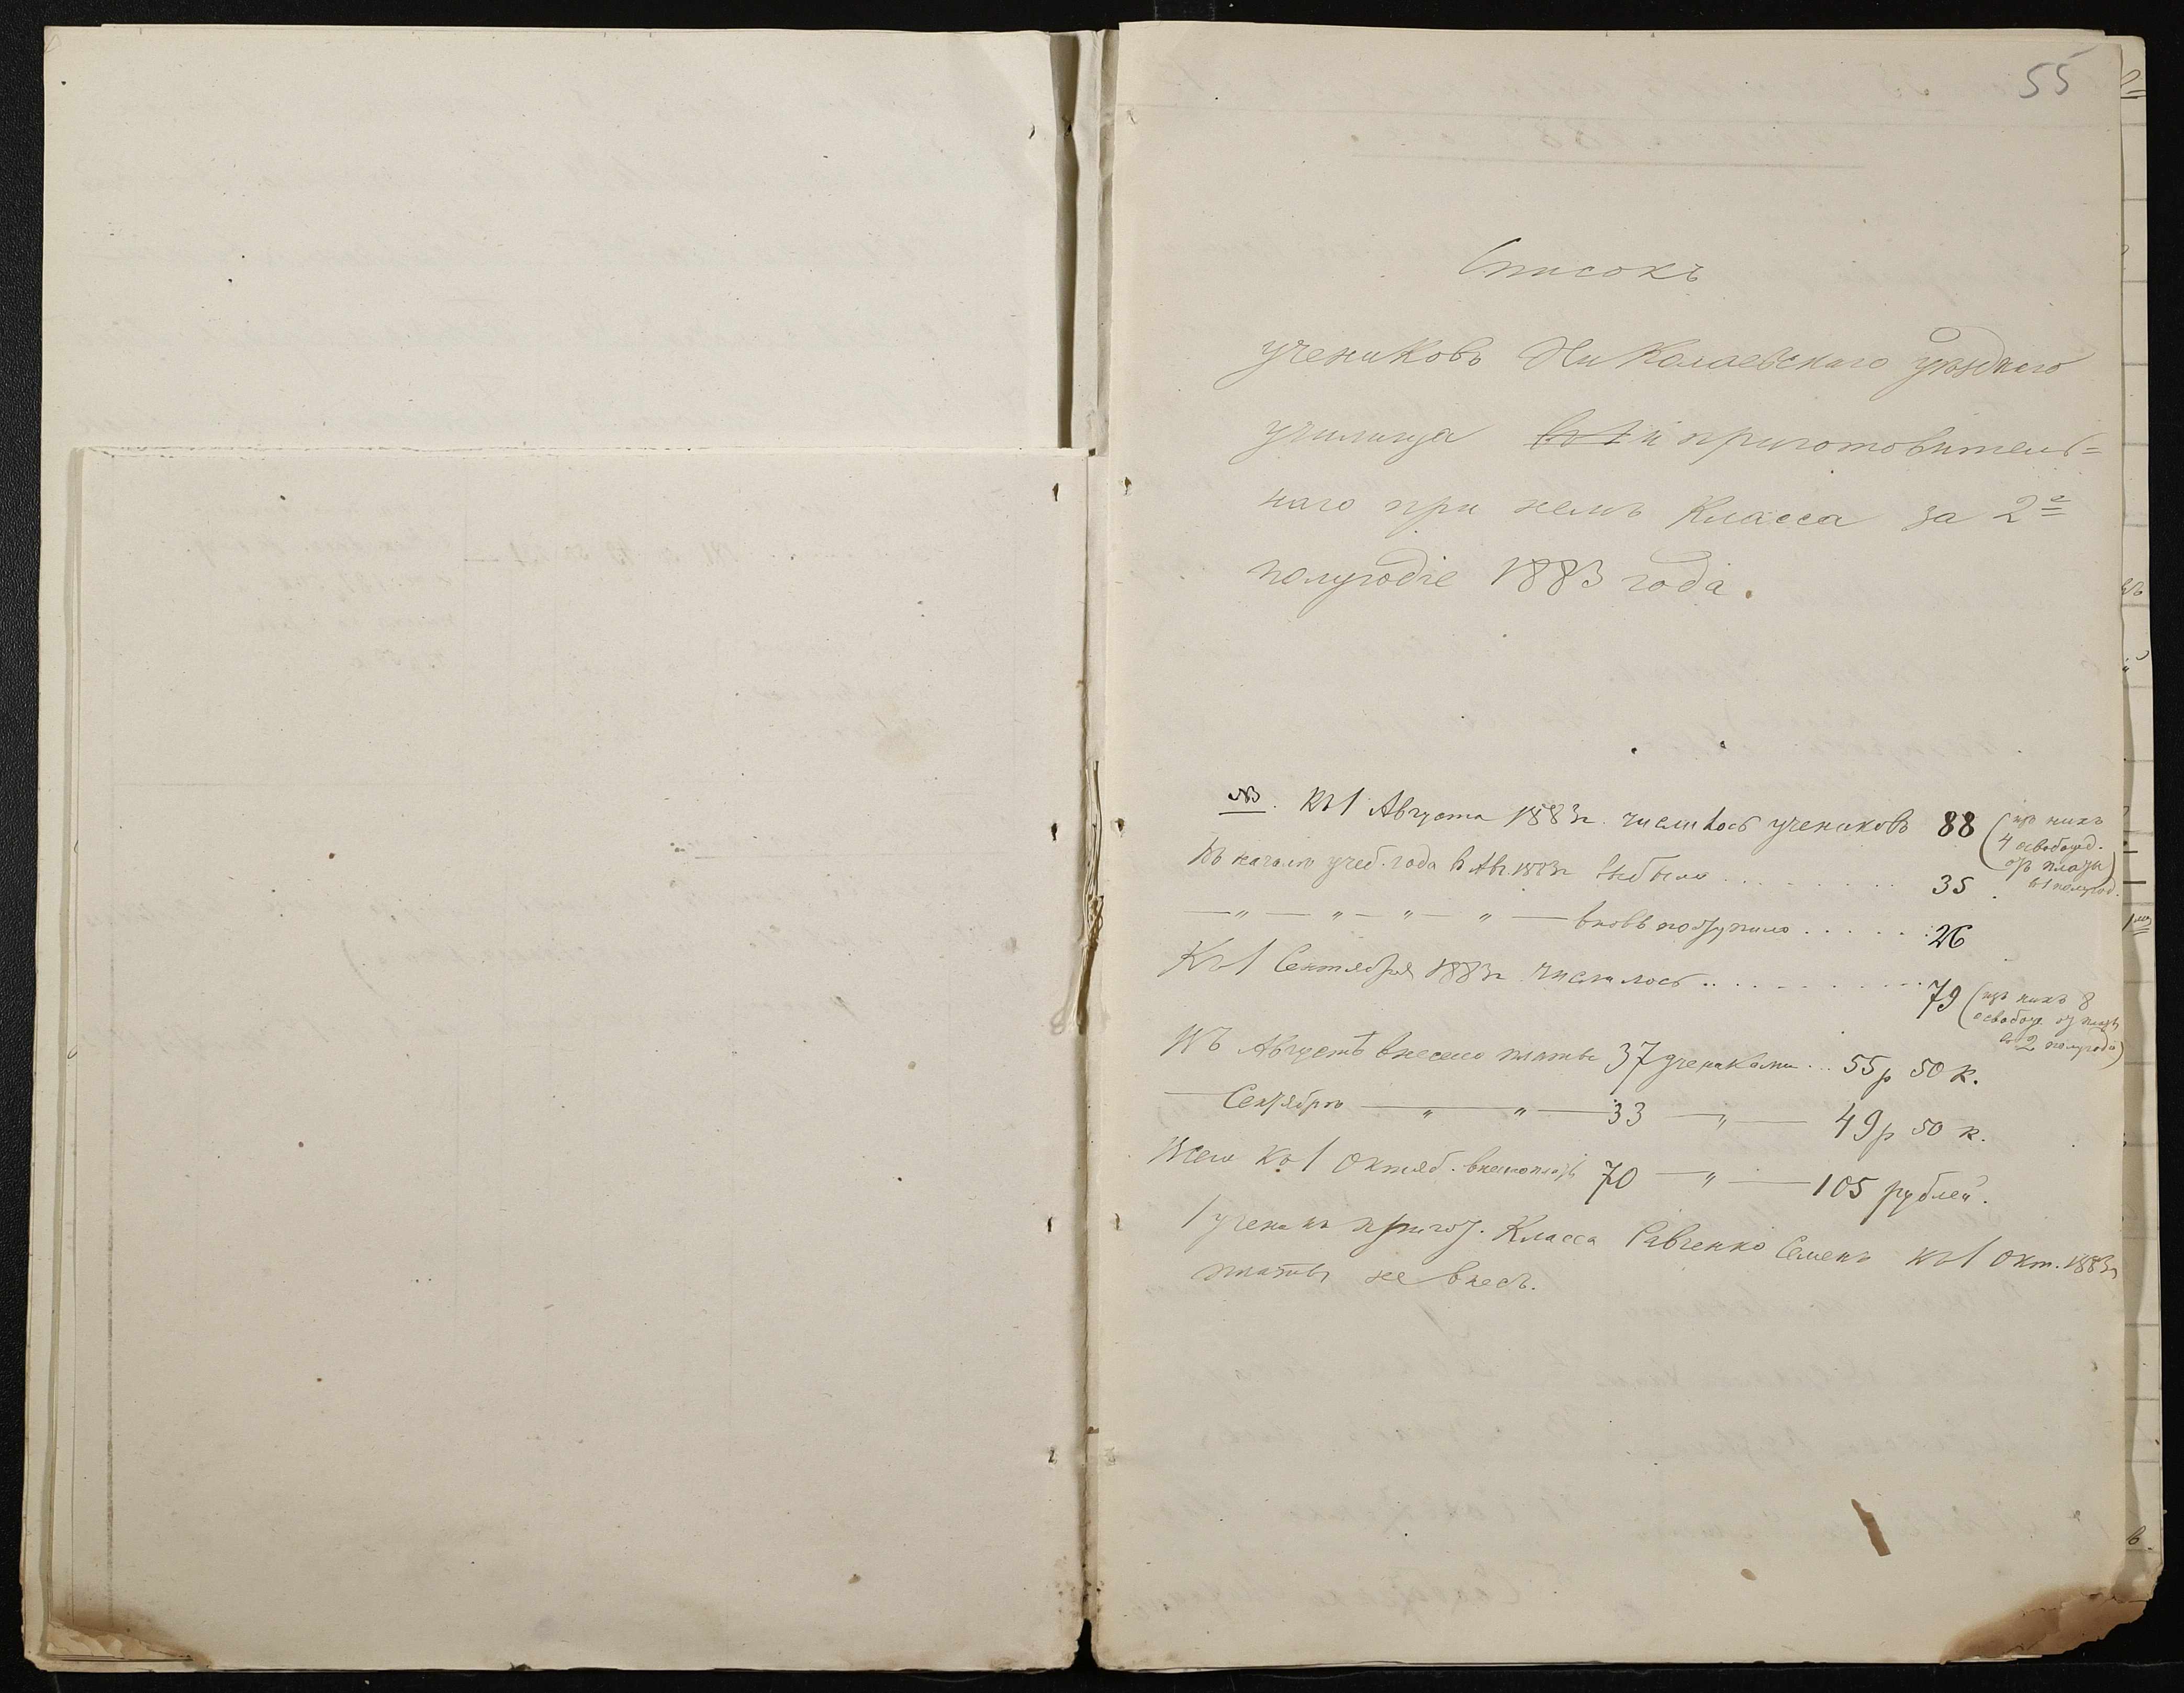 55
Списокъ
учениковъ Николаевскаго уѣзднаго
училища и приготовитель=
наго при немъ класса за 2е
полугодіе 1883 года.
NB. Къ 1 Августа 1883 г. числилось учениковъ 88 (изъ нихъ
4 освобожд.
отъ платы)
въ 1 полугод.
Въ началѣ учеб. года въ Авг. 1883 г. выбыло . . . . . . . . 35
—„— „ — „ — „ — вновь поступило . . . . . . 26
Къ 1 Сентября 1883 г. числилось . . . . . . . . . . 79 (изъ нихъ 8
освобожд. отъ платы
въ 2 полугодіи)
Въ Августѣ внесено платы 37 учениками... 55 р 50 к.
— Сентябрѣ — „ „ — 33 — „ — 49 р 50 к.
Всего къ 1 Октяб. внесло платы 70 — „ — 105 рублей.
1 ученикъ пригот. класса Савченко Семенъ къ 1 Окт. 1883 г
платы не внесъ.